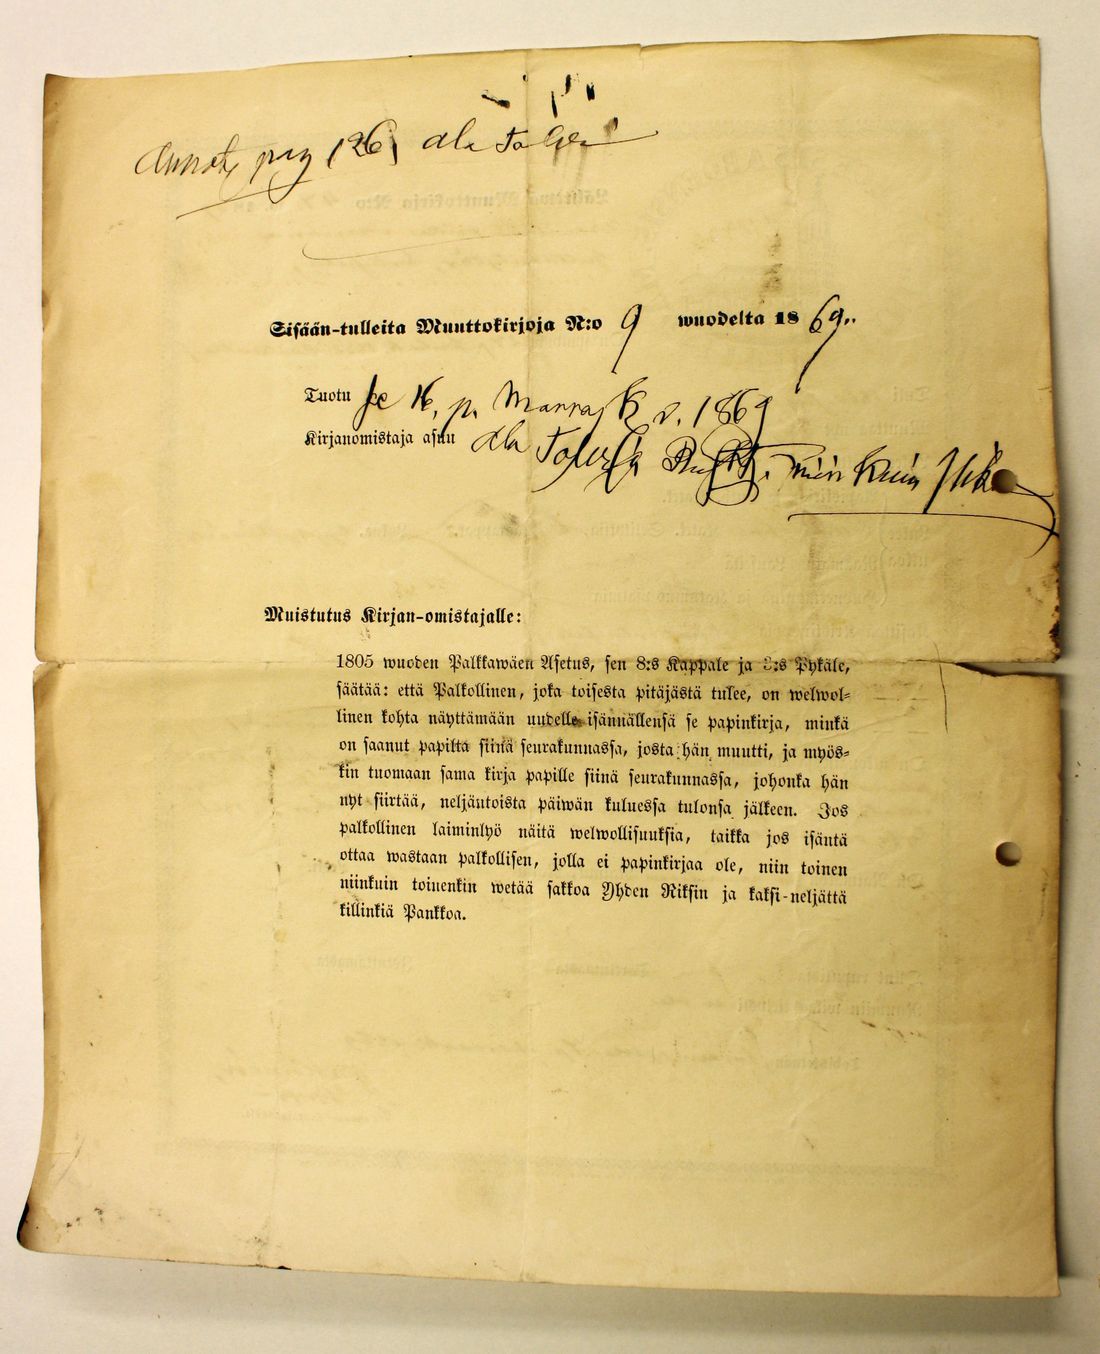 pag 126 ala
Sisään-tulleita Muuttokirjoja N:o 9 wuodelta 1869.
Tuotu se 16 p. Marrask v. 1869
Kirjanomistaja asuu ala niin kuin
Muistutus Kirjan-omistajalle:
1805 wuoden Palkkawäen Asetus, sen 8:s Kappale ja :s Pykäle,
säätää: että Palkollinen, joka toisesta pitäjästä tulee, on welwol-
linen kohta näyttämään uudelle isännällensä se papinkirja, minkä
on saanut papilta siinä seurakunnassa, josta hän muutti, ja myös-
kin tuomaan sama kirja papille siinä seurakunnassa, johonka hän
nyt siirtää, neljäntoista päiwän kuluessa tulonsa jälkeen. Jos
palkollinen laiminlyö näitä welwollisuuksia, taikka jos isäntä
ottaa wastaan palkollisen, jolla ei papinkirjaa ole, niin toinen
niinkuin toinenkin wetää sakkoa Yhden Riksin ja kaksi-neljättä
killinkiä Pankkoa.